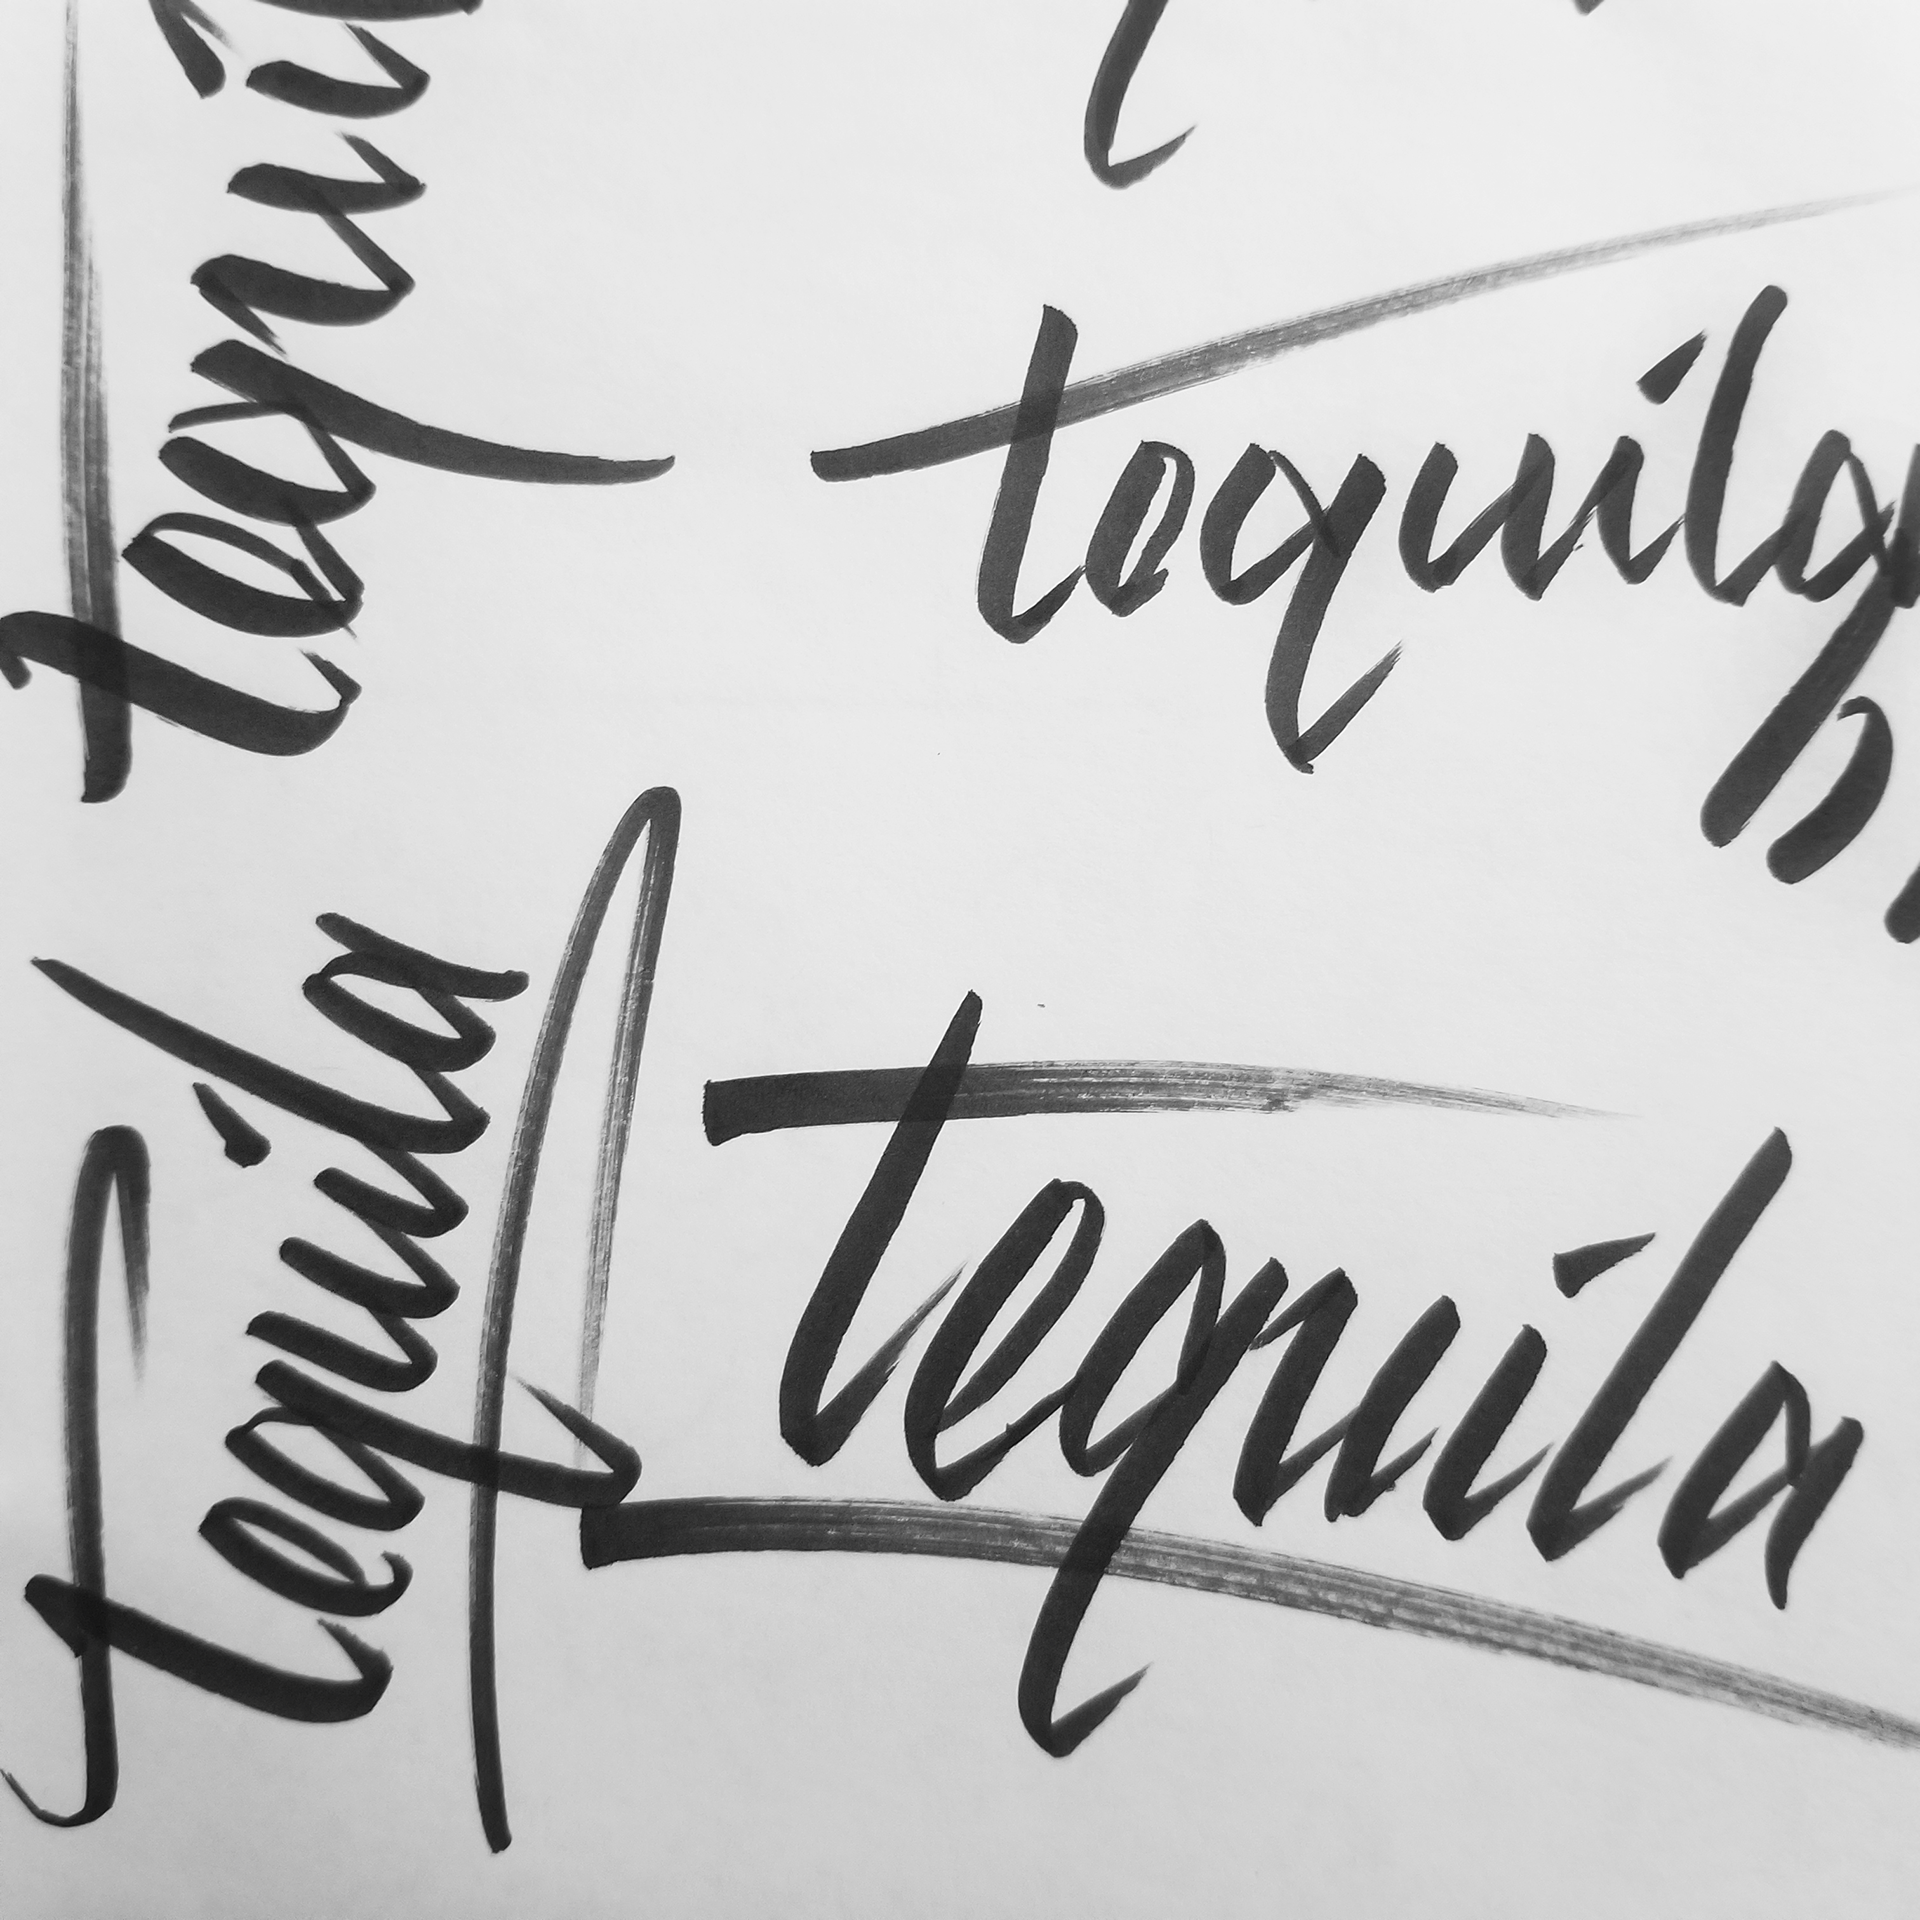 tequi
tequila
tequila
tequila